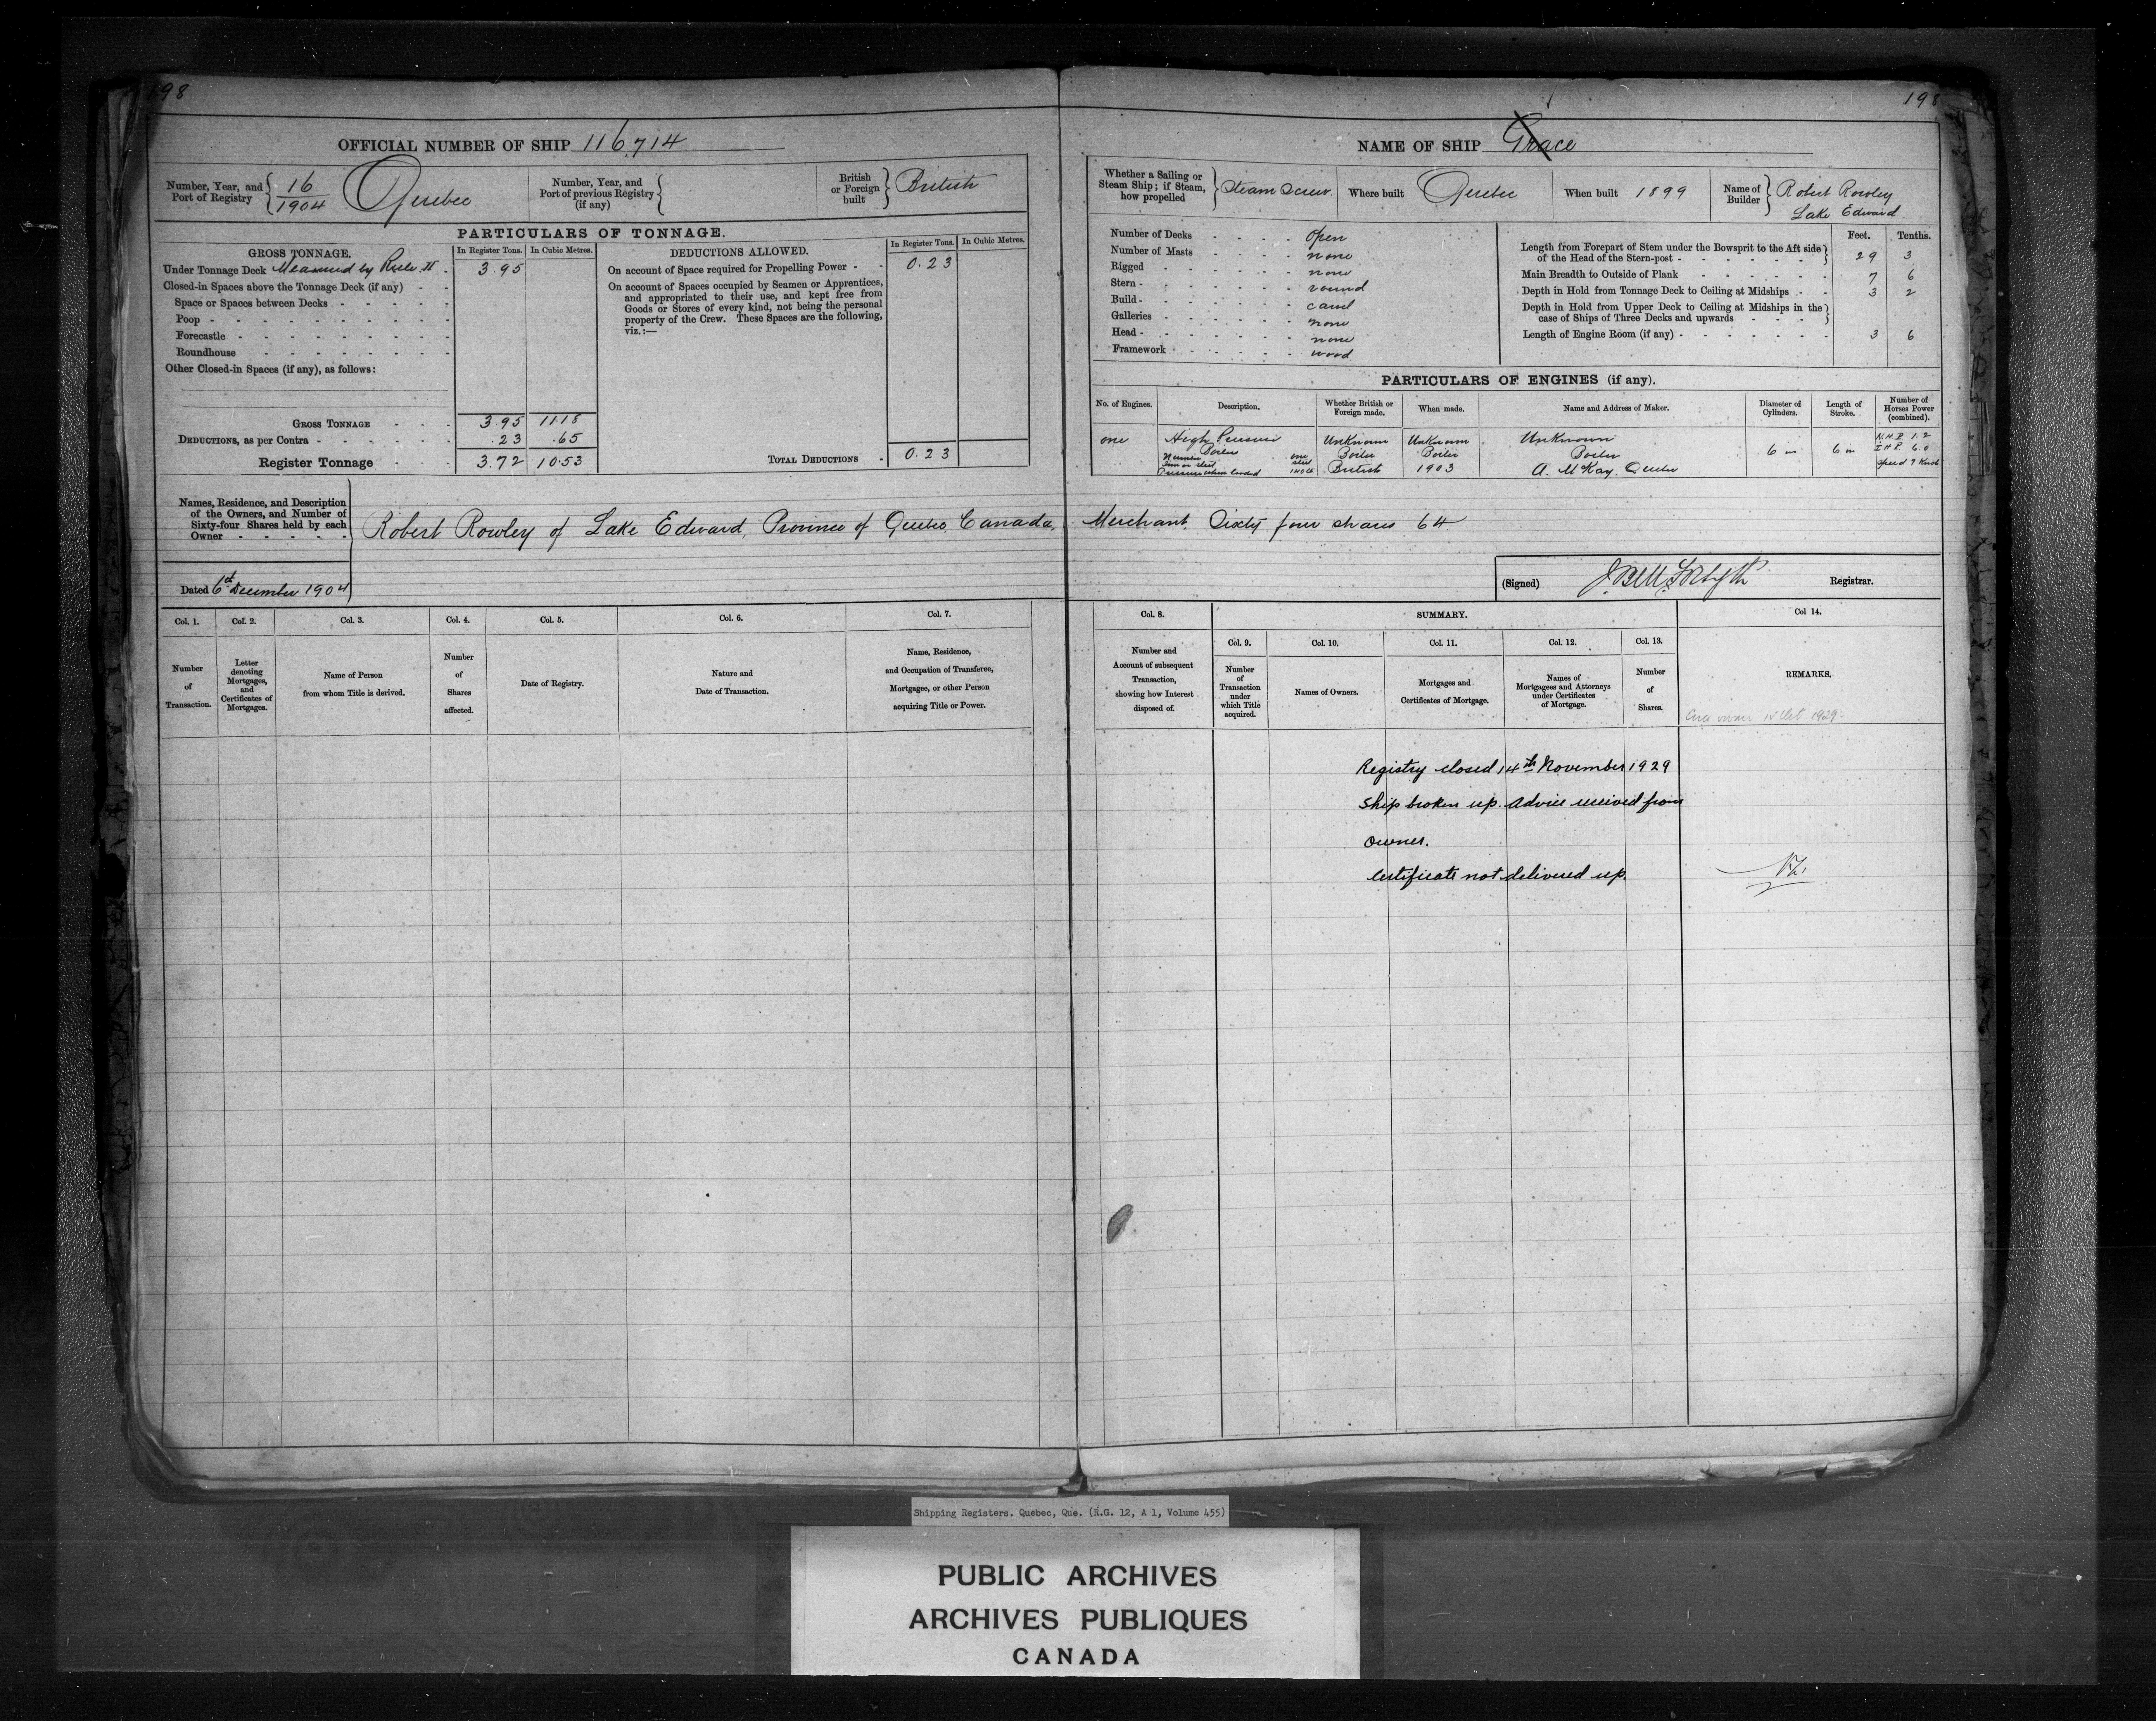 198
198
OFFICIAL NUMBER OF SHIP 116,714
Number, Year, and Port of Registry 16/1904 Quebec
Number, Year, and Port of previous Registry (if any)
British or Foreign built British
PARTICULARS OF TONNAGE.
GROSS TONNAGE. In Register Tons. In Cubic Metres.
Under Tonnage Deck Measured by Rule II - 3.95
Closed-in Spaces above the Tonnage Deck (if any) - -
Space or Spaces between Decks - - - - -
Poop - - - - - - - - -
Forecastle - - - - - - - -
Roundhouse - - - - - - -
Other Closed-in Spaces (if any), as follows:
GROSS TONNAGE - - - 3.95 11.18
DEDUCTIONS, as per Contra - - - - - - .23 .65
Register Tonnage - - - 3.72 10.53
DEDUCTIONS ALLOWED. In Register Tons. In Cubic Metres.
On account of Space required for Propelling Power - - 0.23
On account of Spaces occupied by Seamen or Apprentices,
and appropriated to their use, and kept free from
Goods or Stores of every kind, not being the personal
property of the Crew. These Spaces are the following,
viz.:—
TOTAL DEDUCTIONS - 0.23
NAME OF SHIP Grace
Whether a Sailing or Steam Ship; if Steam, how propelled Steam Screw
Where built Quebec
When built 1899
Name of Builder Robert Rowley
Lake Edward
Number of Decks - - - - open
Number of Masts - - - - none
Rigged - - - - - - none
Stern - - - - - - - round
Build - - - - - - - carvel
Galleries - - - - - - none
Head - - - - - - - none
Framework - - - - - - wood
Feet. Tenths.
Length from Forepart of Stem under the Bowsprit to the Aft side
of the Head of the Stern-post - - - - - - 29 3
Main Breadth to Outside of Plank - - - - - - 7 6
Depth in Hold from Tonnage Deck to Ceiling at Midships - - 3 2
Depth in Hold from Upper Deck to Ceiling at Midships in the
case of Ships of Three Decks and upwards - - - -
Length of Engine Room (if any) - - - - - - - 3 6
PARTICULARS OF ENGINES (if any).
No. of Engines. Description. Whether British or Foreign made. When made. Name and Address of Maker. Diameter of Cylinders. Length of Stroke. Number of Horses Power (combined).
one High Pressure Unknown Unknown Unknown 6 in 6 in N.H.P. 1.2
Boilers Boiler Boiler Boiler I.H.P. 6.0
Number one
Iron or steel steel
Pressure when loaded British 1903 A. McKay, Quebec Speed 7 Knots
Names, Residence, and Description
of the Owners, and Number of
Sixty-four Shares held by each
Owner - - - - -
Robert Rowley of Lake Edward, Province of Quebec Canada, Merchant. Sixty four shares 64
Dated 6th December 1904
(Signed) Registrar.
Col. 1. Col. 2. Col. 3. Col. 4. Col. 5. Col. 6. Col. 7.
Number of Transaction.
Letter denoting Mortgages, and Certificates of Mortgages.
Name of Person from whom Title is derived.
Number of Shares affected.
Date of Registry.
Nature and Date of Transaction.
Name, Residence, and Occupation of Transferee, Mortgagee, or other Person acquiring Title or Power.
Col. 8. SUMMARY. Col 14.
Col. 9. Col. 10. Col. 11. Col. 12. Col. 13.
Number and Account of subsequent Transaction, showing how Interest disposed of.
Number of Transaction under which Title acquired.
Names of Owners.
Mortgages and Certificates of Mortgage.
Names of Mortgagees and Attorneys under Certificates of Mortgage.
Number of Shares.
REMARKS.
Oct 1929
Registry closed 14th November 1929
Ship broken up. Advice received from
owner.
Certificate not delivered up.
Shipping Registers. Quebec, Que. (R.G. 12, A 1, Volume 455)
PUBLIC ARCHIVES
ARCHIVES PUBLIQUES
CANADA